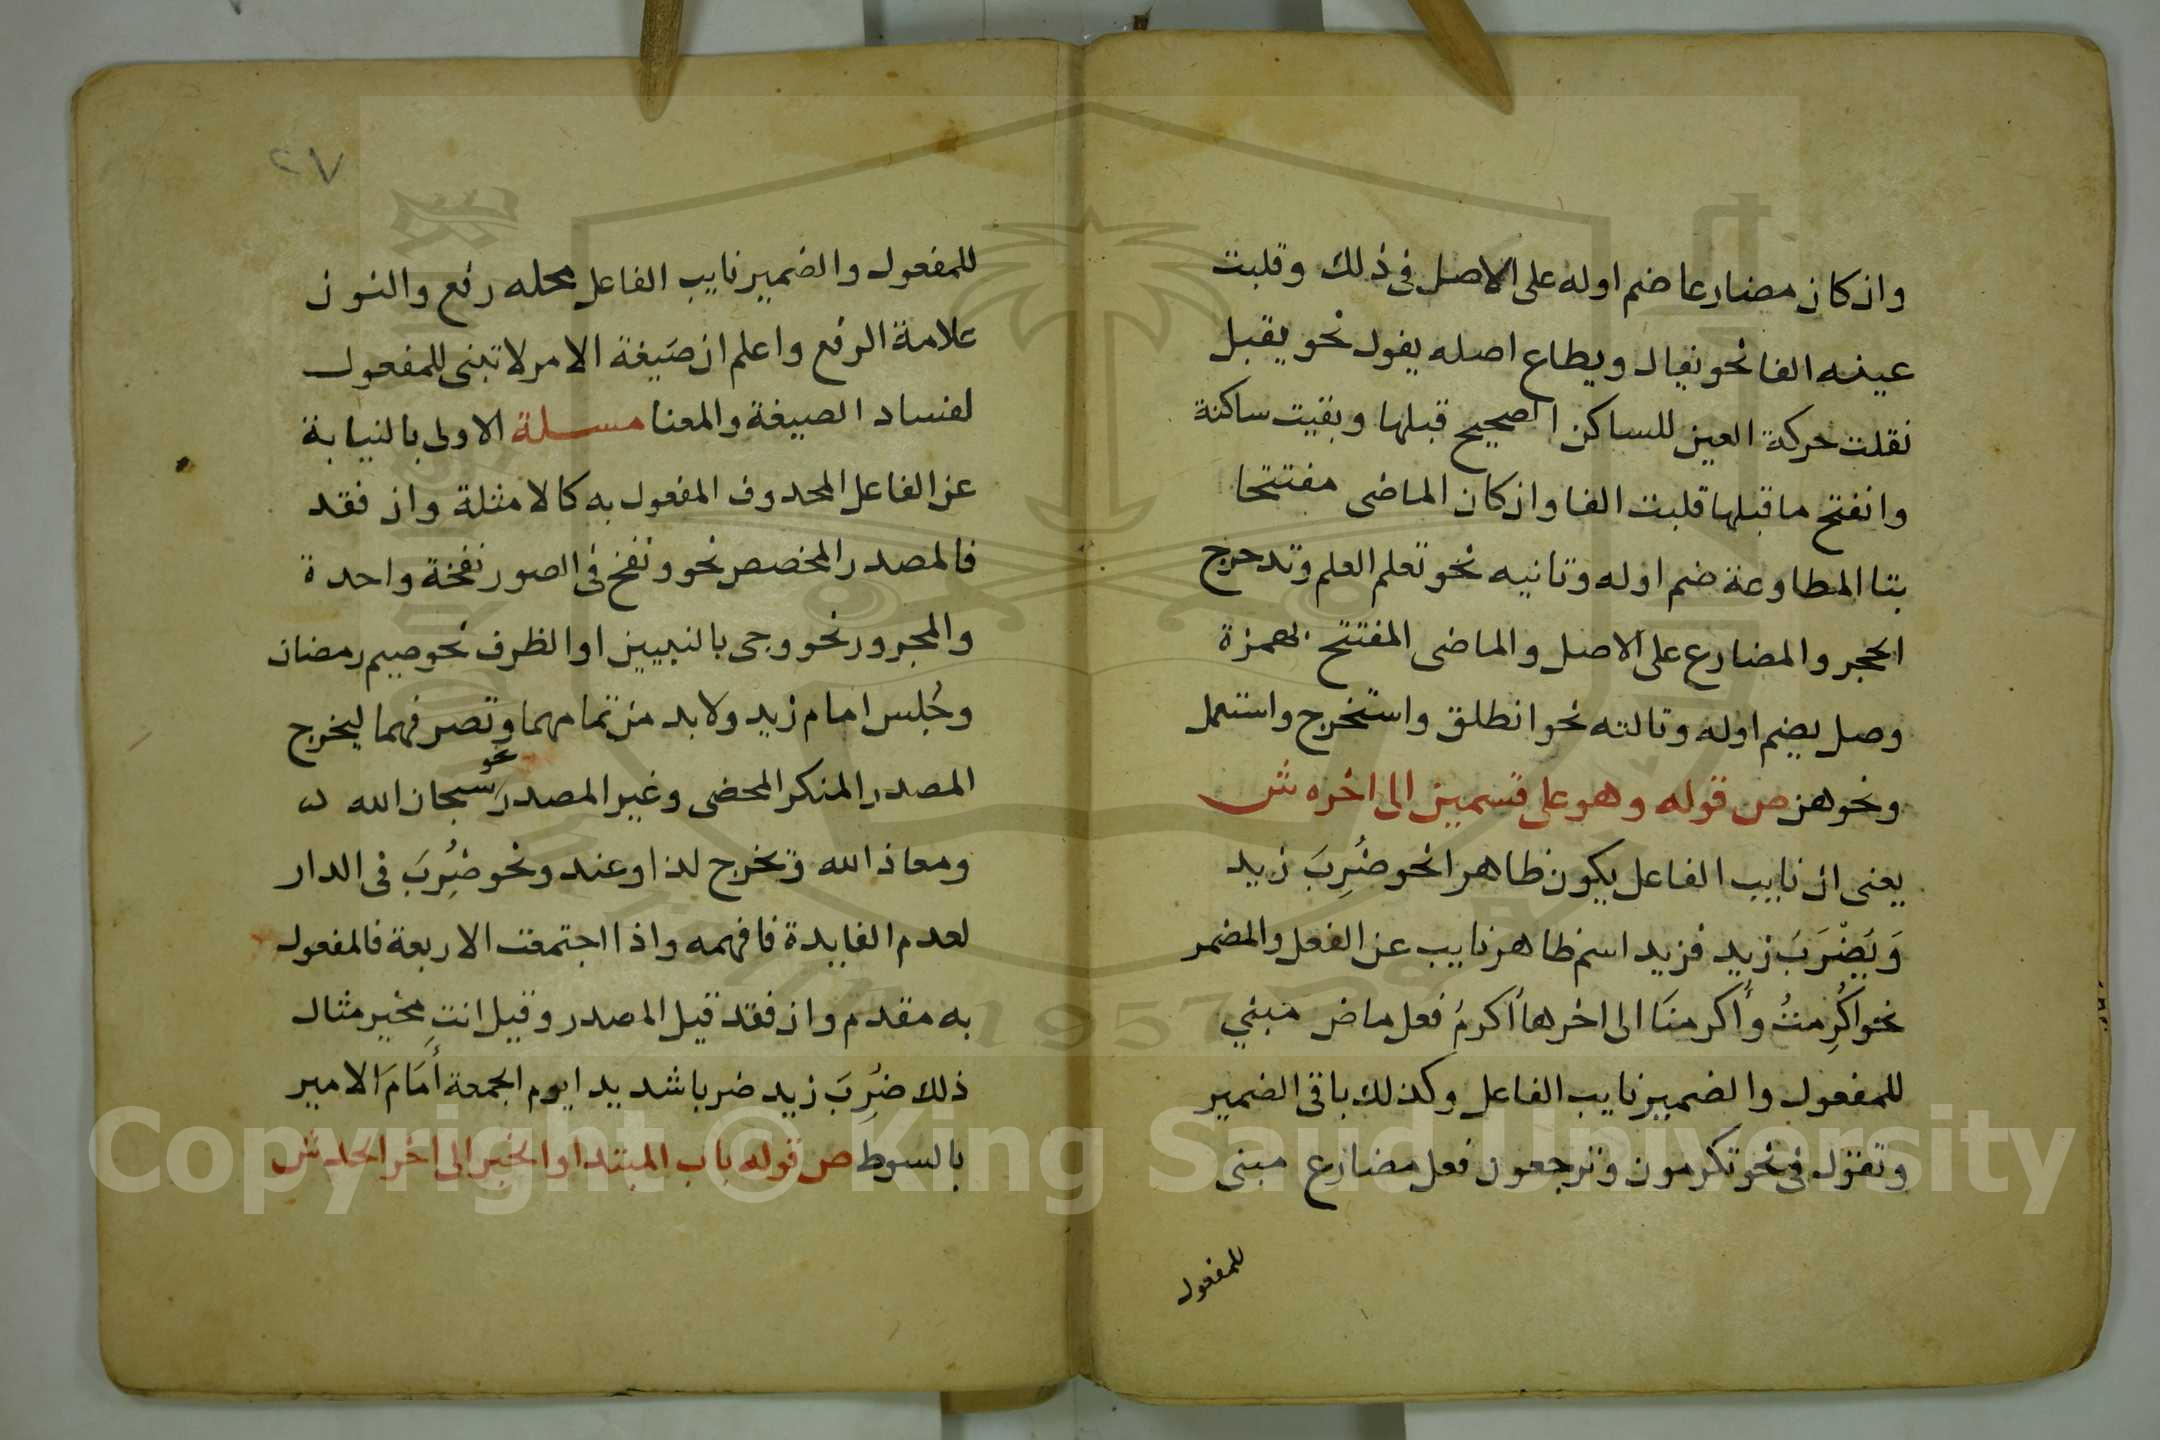 وان كان مضارعا ضم اوله على الاصل فى ذلك وقلبت
عينه الفا نحو يقال ويطاع اصله يقول نحو يقبل
نقلت حركة العين للساكن الصحيح قبلها وبقيت ساكنة
وانفتح ما قبلها قلبت الفا وان كان الماضى مفتتحا
بتا المطاوعة ضم اوله وثانيه نحو تعلم العلم وتدحرج
الحجر والمضارع على الاصل والماضى المفتتح بهمزة
وصل يضم اوله وثالثه نحو انطلق واستخرج واستعمل
ونحو هن ص قوله وهو على قسمين الى اخره ش
يعنى ان نايب الفاعل يكون ظاهرا نحو ضُرِبَ زيد
وَيَضْرَبَ زيد فزيد اسم ظاهر نايب عن الفعل والمضمر
نحو اكُرِمتُ وأكرمنَا الى اخرها أكرمُ فعل ماض مبني
للمفعول والضمير نايب الفاعل وكذلك باقى الضمير
وتقول فى نحو تكرمون وترجعون فعل مضارع مبنى
للمفعول
٢٧
للمفعول والضمير نايب الفاعل محله رفع والنون
علامة الرفع واعلم ان صَيغة الامر لا تبنى للمفعول
لفساد الصيغة والمعنا مسلة الاولى بالنيابة
عن الفاعل المحدوف المفعول به كالامثلة وان فقد
فالمصدر المخصص نحو ونفخ فى الصور نفخة واحدة
والمجرور نحو وجى بالنبيين او الظرف نحو صيم رمضان
وجُلس امام زيد ولابد من تمامهما وتصرفهما ليخرج
المصدر المنكر المحضى وغير المصدر نحو سبحان الله
ومعاذ الله وتخرج لدا وعند ونحو ضُرِبَ فى الدار
لعدم الفايدة فافهمه واذا اجتمعت الاربعة فالمفعول
به مقدم وان فقد قيل المصدر وقيل انتِ مخير مثال
ذلك ضُرِبَ زيد ضربا شديد ايوم الجمعة أمَامَ الامير
بالسوط ص قوله باب المبتدا والخبر الى اخر الحد ش
Copyright © King Saud University
1957